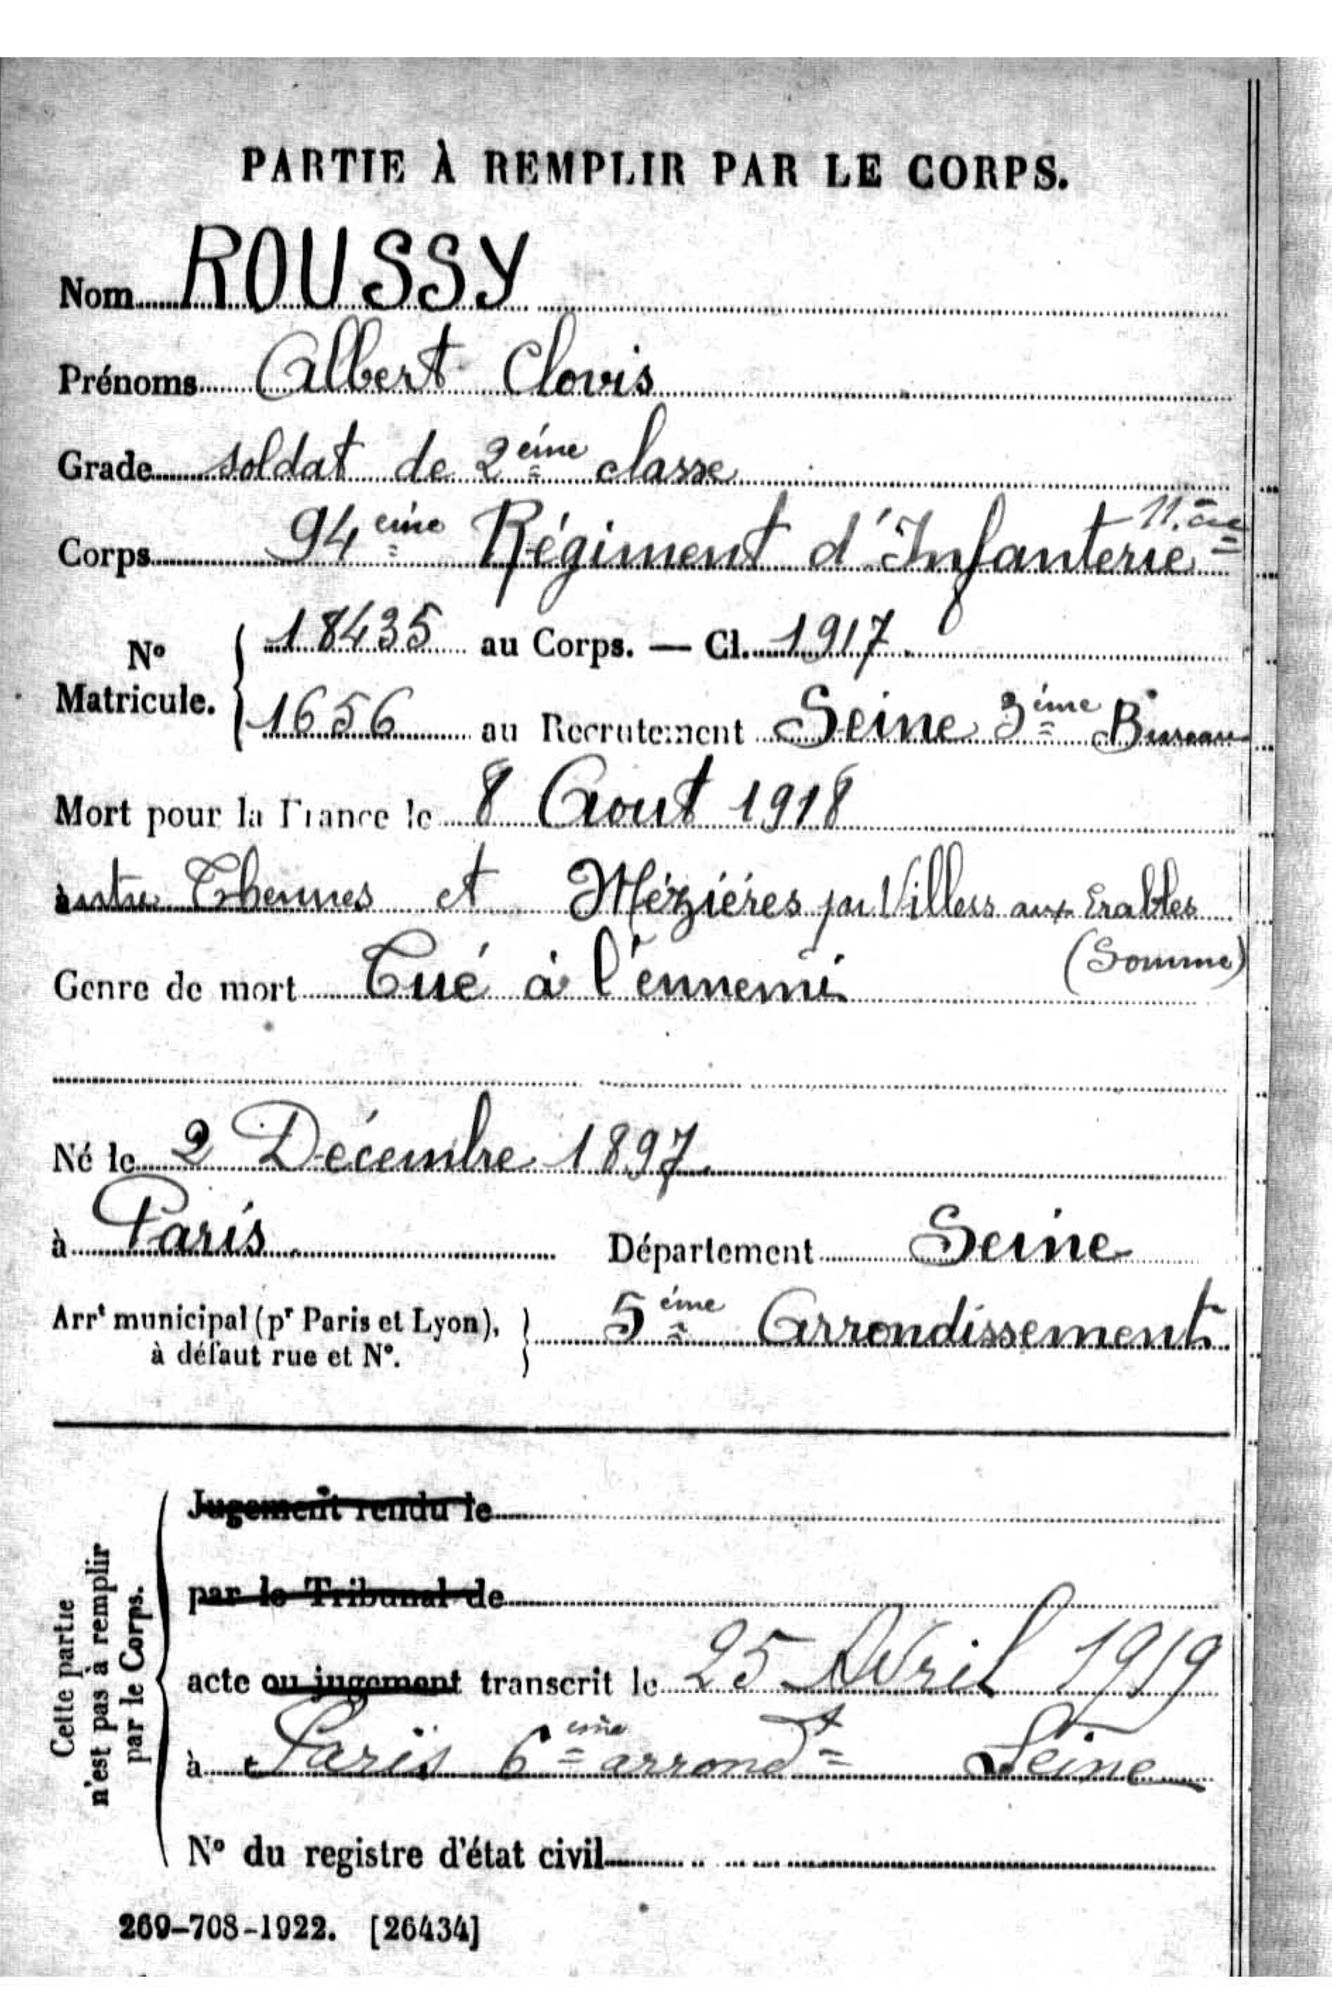 PARTIE À REMPLIR PAR LE CORPS.
Nom ROUSSY
Prénoms Albert Clovis
Grade soldat de 2 éme classe
Corps 94 eme Régiment d'Infanterie
N° Matricule. { 18435 au Corps. — Cl. 1917
1656 au Recrutement Seine 3 éme Bureau
Mort pour la France le 8 Aout 1918
entre Thennes et Méziéres par Villers aux Erables
(Somme)
Genre de mort Tué à l'ennemi
Né le 2 Décembre 1897
à Paris Département Seine
Arrt municipal (pr Paris et Lyon), à défaut rue et N°. } 5 éme Arrondissement
Cette partie n'est pas à remplir par le Corps.
Jugement rendu le
par le Tribunal de
acte ou jugement transcrit le 25 Avril 1919
à Paris 6 eme arrondt Seine
N° du registre d'état civil
269-708-1922. [26434]